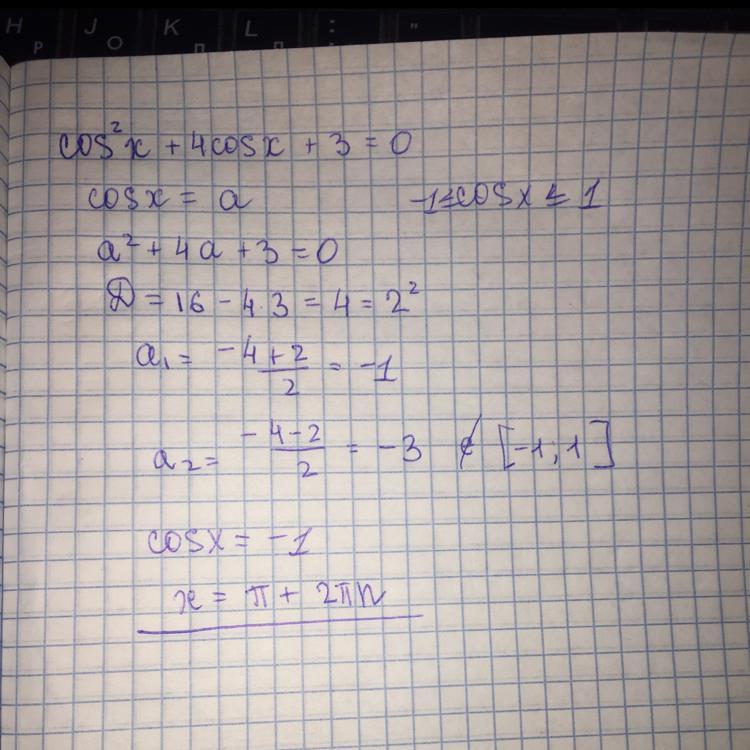 H Р J О K Л L Д : ; "
cos²x + 4cosx + 3 = 0
cosx = a -1≤cosx ≤ 1
a² + 4a + 3 = 0
D = 16 - 4·3 = 4 = 2²
a₁ = (-4+2)/2 = -1
a₂ = (-4-2)/2 = -3 ∉ [-1; 1]
cosx = -1
x = π + 2πn